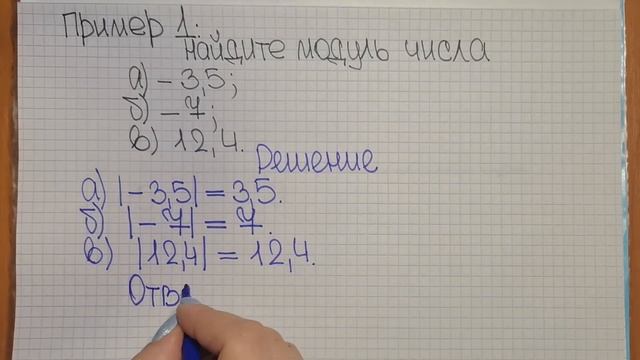 Пример 1:
найдите модуль числа
а) – 3,5;
б) – 7;
в) 12,4.
Решение
а) |– 3,5| = 3,5.
б) |– 7| = 7.
в) |12,4| = 12,4.
Отв